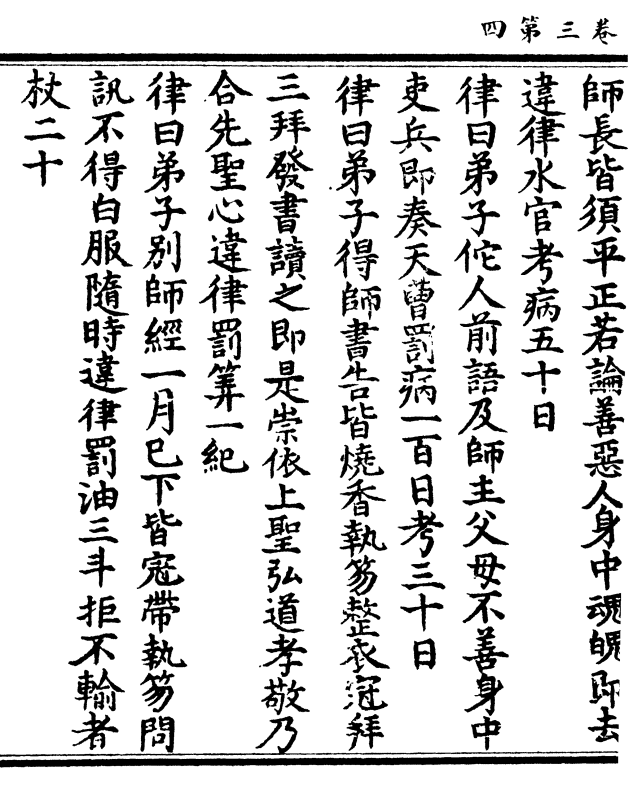 卷三第四
師長皆須平正若論善惡人身中魂魄即去
違律水官考病五十日
律曰弟子佗人前語及師主父母不善身中
吏兵即奏天曹罰病一百日考三十日
律曰弟子得師書告皆燒香執笏整衣冠拜
三拜發書讀之即是崇依上聖弘道孝敬乃
合先聖心違律罰筭一紀
律曰弟子別師經一月已下皆冠帶執笏問
訊不得白服隨時違律罰油三斗拒不輸者
杖二十